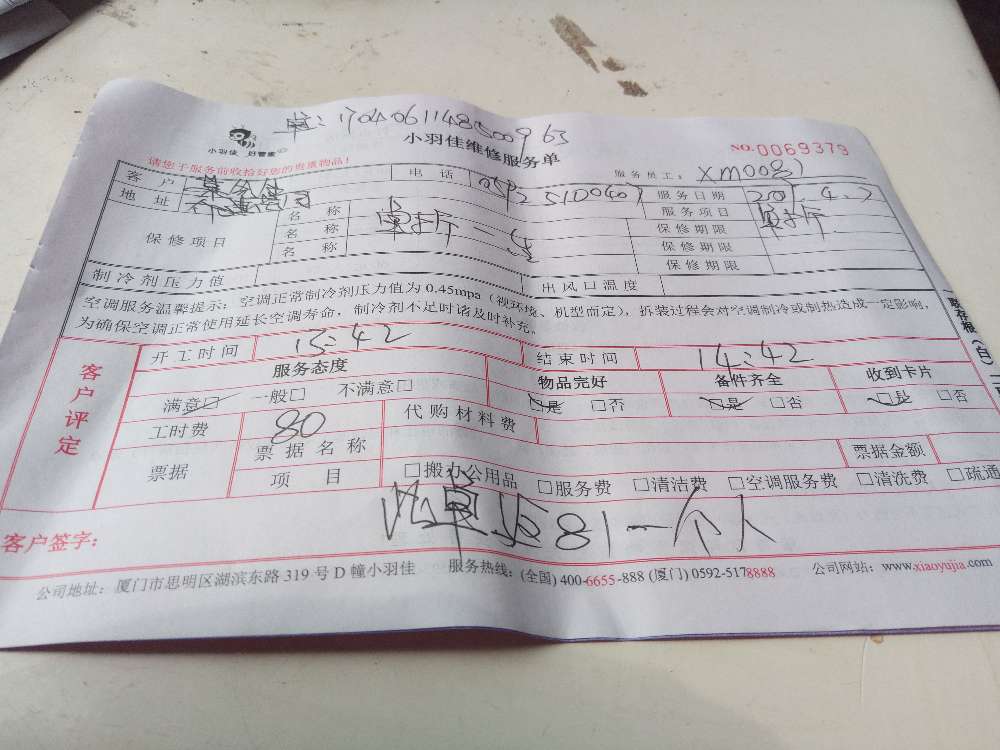 单: 170406114850096
小羽佳 好管家
小羽佳维修服务单
NO.0069379
请您于服务前收拾好您的贵重物品!
服务员工:
客户 电话 服务日期
地址 服务项目 单拆
保修项目 名称 单拆一台 保修期限
名称 保修期限
名称 保修期限
制冷剂压力值 出风口温度
空调服务温馨提示:空调正常制冷剂压力值为0.45mpa(视环境、机型而定),拆装过程会对空调制冷或制热造成一定影响,
为确保空调正常使用延长空调寿命,制冷剂不足时请及时补充。
联存根(白)
客户评定
开工时间 13:42 结束时间 14:42
服务态度 物品完好 备件齐全 收到卡片
满意□ 一般□ 不满意□ □是 □否 □是 □否 □是 □否
工时费 80 代购材料费
票据 票据名称 票据金额
项目 □搬办公用品 □服务费 □清洁费 □空调服务费 □清洗费 □疏通
此单 81一个人
客户签字:
公司地址:厦门市思明区湖滨东路319号D幢小羽佳 服务热线:(全国)400-6655-888 (厦门)0592-5178888 公司网站:www.xiaoyujia.com